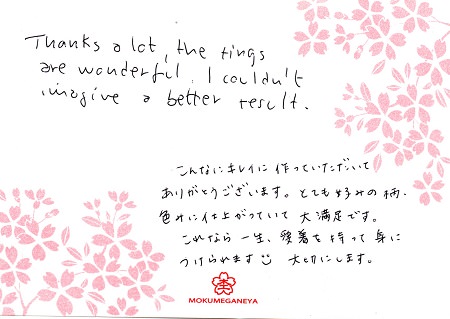 Thanks a lot, the rings
are wonderful. I couldn't
imagine a better result.
こんなにキレイに作っていただいて
ありがとうございます。とても好みの柄、
色みに仕上がっていて大満足です。
これなら一生、愛着を持って身に
つけられます 大切にします。
MOKUMEGANEYA